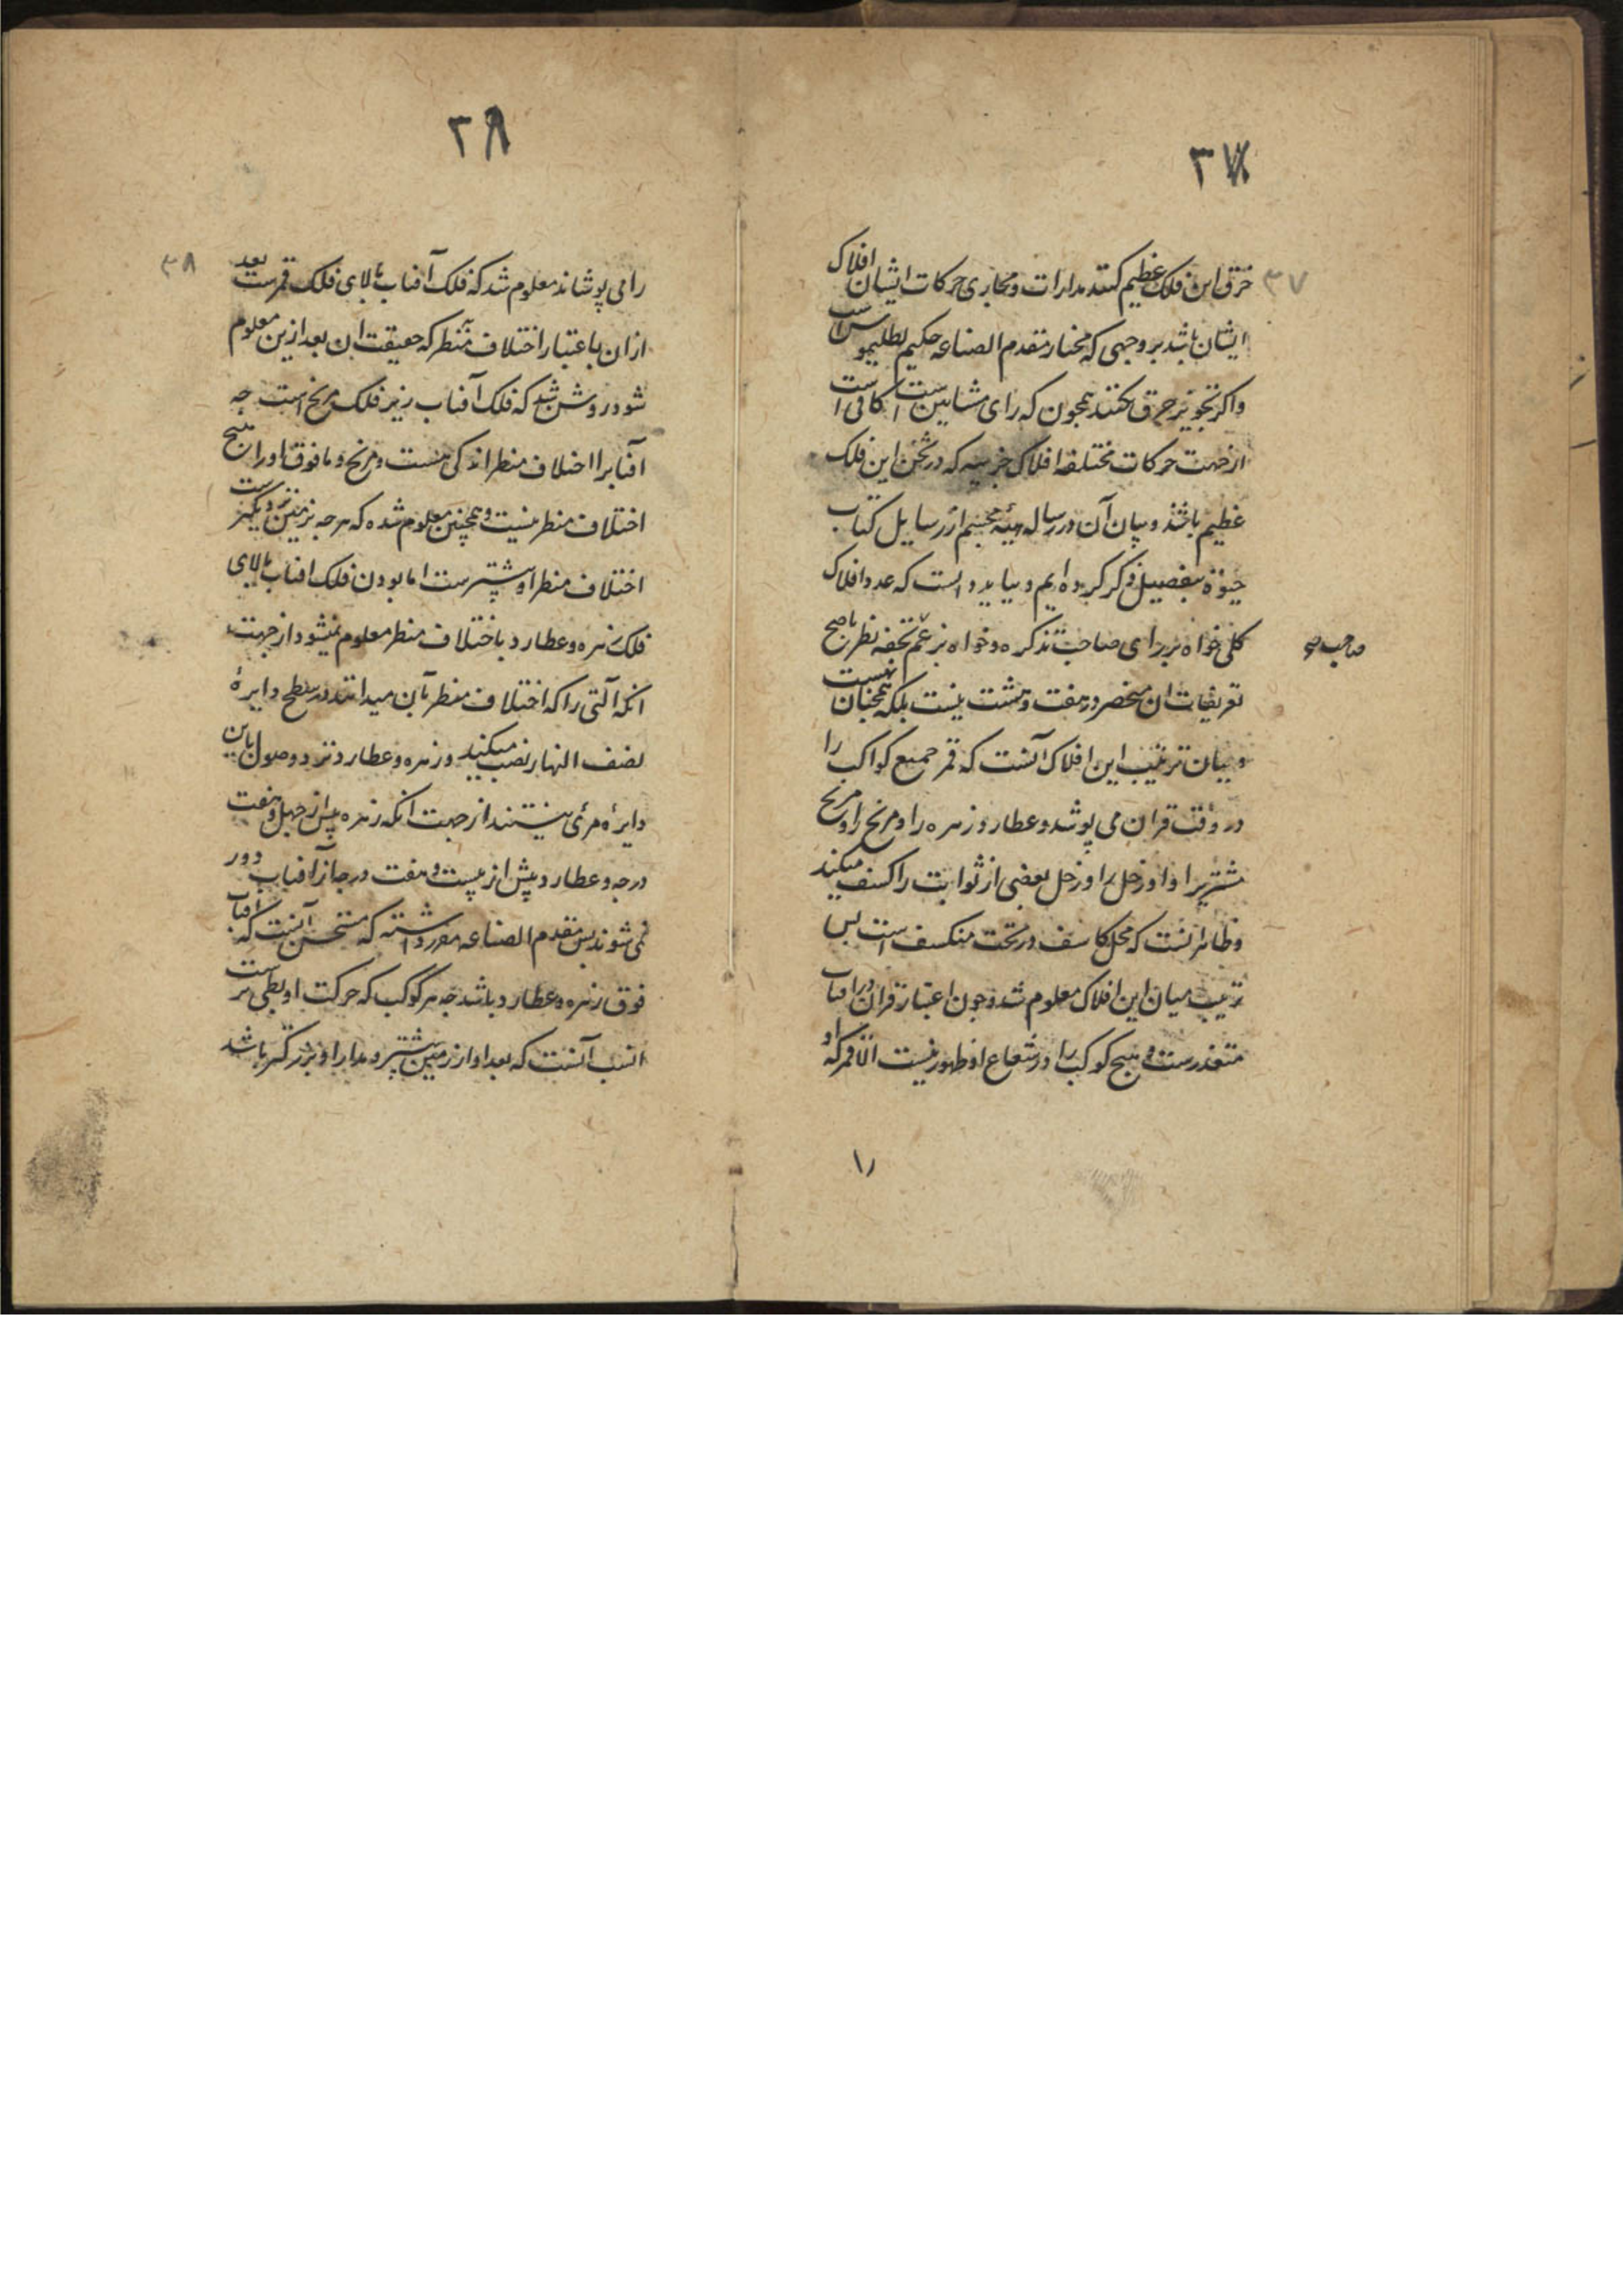 ۳۷
۳۷
خرق این فلک عظیم کنند مدارات و مجاری حرکات ایشان افلاک
ایشان باشد بر وجهی که مختار مقدم الصناعه حکیم بطلیموس است
واکر تجویز خرق نکنند همچون که رای مشایین است
از جهت حرکات مختلفه افلاک جزییه که در ثخن این فلک
عظیم باشد و بیان آن در رساله هیئه مجسم از رسایل کتاب
بتفصیل ذکر کرده ایم و بباید دانست که عدد افلاک
کلی خواه بر رای صاحب تذکره و خواه بر زعم تحفه نظر بناصح
صاحب صح
تعریفات ان منحصر در هفت و هشت نیست بلکه همچنان نهست
و بیان ترتیب این افلاک آنست که قمر جمیع کواکب را
در وقت قران می پوشد و عطارد زهره را و مریخ را و مریخ
مشتریرا و او زحل را و زحل بعضی از ثوابت را کسف میکند
و ظاهر انست که محل کاسف در تحت منکسف است پس
ترتیب میان این افلاک معلوم شد و چون اعتبار قران در افتاب
متعذرست و هیچ کوکب را در شعاع او ظهور نیست الا قمر که او
را
۳۸
۳۸
را می پوشاند معلوم شد که فلک آفتاب بالای فلک قمرست بعد
ازان باعتبار اختلاف منظر که حقیقت ان بعد ازین معلوم
شود روشن شد که فلک آفتاب زیر فلک مریخ است چه
افتابرا اختلاف منظر اندکی هست و مریخ و ما فوق اورا هیچ
اختلاف منظر نیست و همچنین معلوم شده که هرچه بزمین نزدیکترست
اختلاف منظر او بیشترست اما بودن فلک افتاب بالای
فلک زهره و عطارد باختلاف منظر معلوم نمیشود از جهت
انکه آلتی را که اختلاف منظر بآن میدانند در سطح دایرهٔ
نصف النهار نصب میکنند و زهره و عطارد نزد وصول باین
دایره مرئی نیستند از جهت انکه زهره بیش از چهل و هفت
درجه و عطارد بیش از بیست و هفت درجه از آفتاب دور
نمی شوند پس مقدم الصناعه مقرر داشته که مستحسن آنست که افتاب
فوق زهره و عطارد باشد چه هر کوکب که حرکت او بطی ترست
انسب آنست که بعد او از زمین بیشتر و مدار او بزرکتر باشد